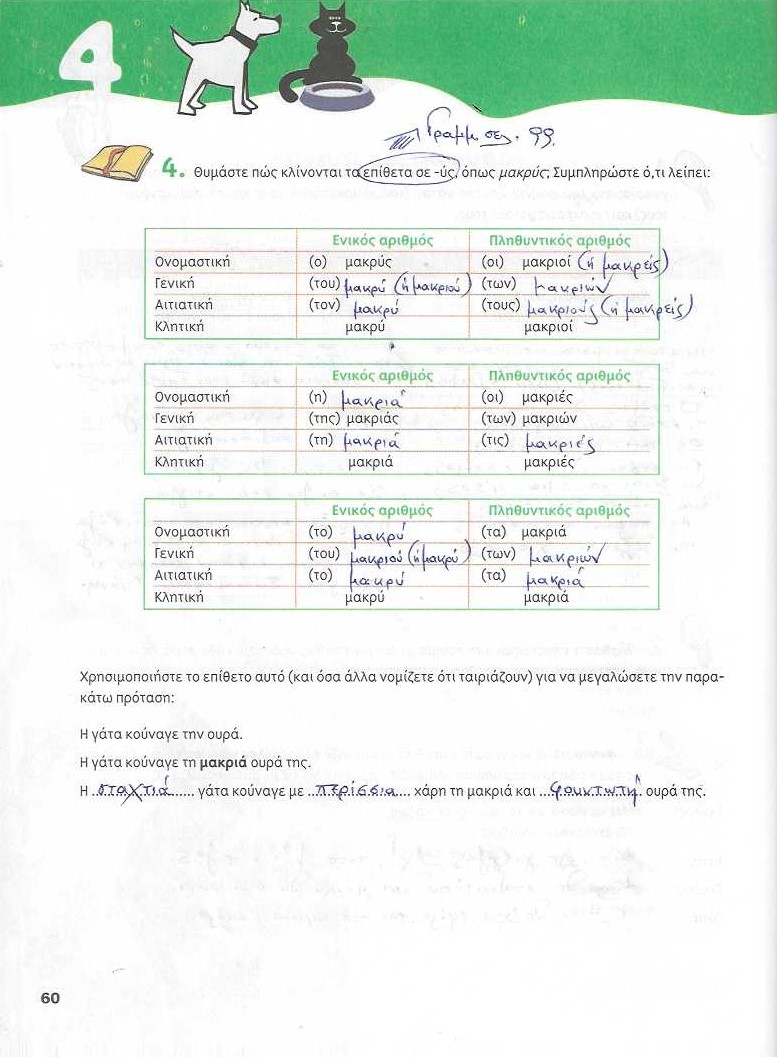 4
Γραμμ σελ. 99
4. Θυμάστε πώς κλίνονται τα επίθετα σε -ύς, όπως μακρύς; Συμπληρώστε ό,τι λείπει:
Ενικός αριθμός Πληθυντικός αριθμός
Ονομαστική (ο) μακρύς (οι) μακριοί (ή μακρείς)
Γενική (του) μακρύ (ή μακριού) (των) μακριών
Αιτιατική (τον) μακρύ (τους) μακριούς (ή μακρείς)
Κλητική μακρύ μακριοί
Ενικός αριθμός Πληθυντικός αριθμός
Ονομαστική (η) μακριά (οι) μακριές
Γενική (της) μακριάς (των) μακριών
Αιτιατική (τη) μακριά (τις) μακριές
Κλητική μακριά μακριές
Ενικός αριθμός Πληθυντικός αριθμός
Ονομαστική (το) μακρύ (τα) μακριά
Γενική (του) μακριού (ή μακρύ) (των) μακριών
Αιτιατική (το) μακρύ (τα) μακριά
Κλητική μακρύ μακριά
Χρησιμοποιήστε το επίθετο αυτό (και όσα άλλα νομίζετε ότι ταιριάζουν) για να μεγαλώσετε την παρα-
κάτω πρόταση:
Η γάτα κούναγε την ουρά.
Η γάτα κούναγε τη μακριά ουρά της.
Η σταχτιά γάτα κούναγε με περίσσια χάρη τη μακριά και φουντωτή ουρά της.
60